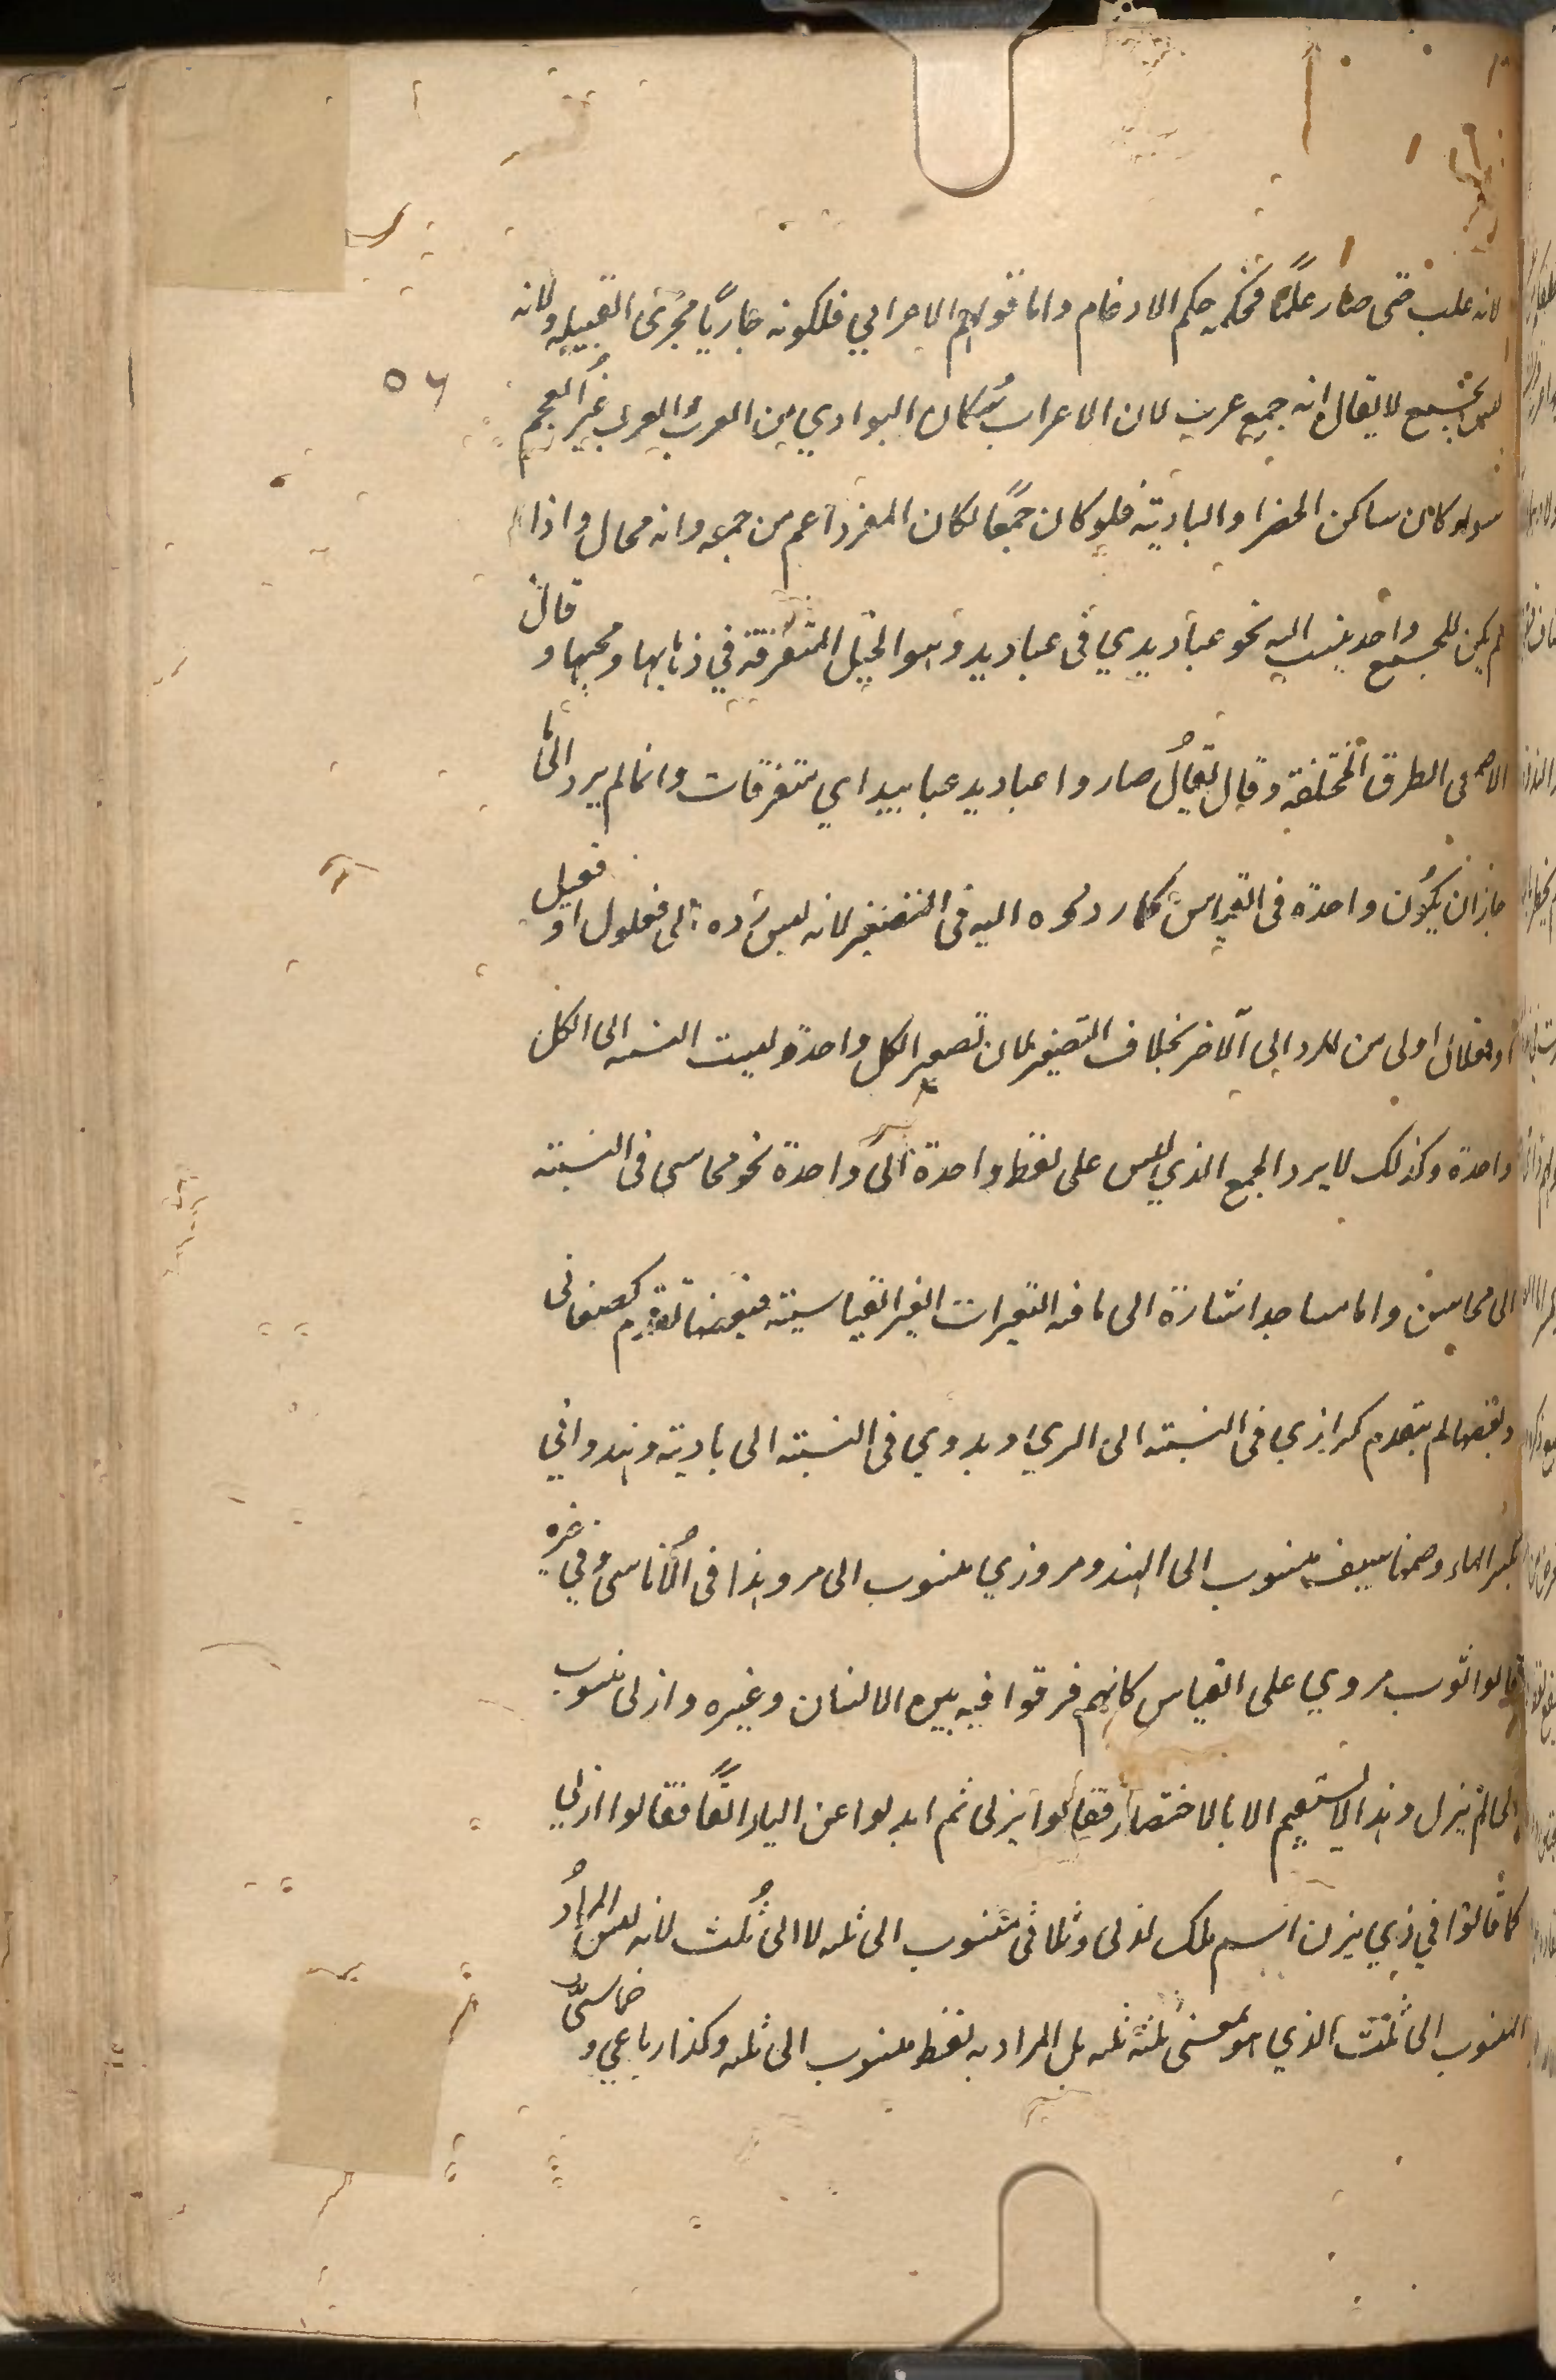 لانه غلب حتى صار علما فحكمه حكم الاوهام واما قولهم الاعرابي فلكونه جاريا مجرى القبيلة ولانه
ليس بجمع لا يقال انه جمع عرب لان الاعراب سكان البوادي من العرب والعرب غير العجم
سواء كان ساكن الحضر او البادية فلو كان جمعا لكان المفرد اعم من جمعه وانه محال واذا
لم يكن للجمع واحد ينسب اليه نحو عباديدي في عباديد وهو الخيل المتفرقة في ذهابها ومجيها وقال
الاصمعي الطرق المختلفة وقال يقال صاروا عباديد عبابيد اي متفرقات وانما لم يرد الى ما
جاز ان يكون واحدة في القياس كما ردوه اليه في التصغير لانه ليس رده الى فعلول او فعيل
او فعلال اولى من الرد الى الاخر بخلاف التصغير لان تصغير الكل واحد وليست النسبه الى الكل
واحدة وكذلك لا يرد الجمع الذي ليس على لفظ واحدة الى واحدة نحو محاسني في النسبته
الى محاسن واما مساجد اشارة الى ما فيه التغيرات الغير القياسية فبعضها تقدم كصنعاني
وبعضها لم يتقدم كرازي في النسبته الى الري وبدوي في النسبته الى بادية وهندواني
بكسر الهاء وضمها سيف منسوب الى الهند ومروزي منسوب الى مرو هذا في الاناسي وفي غيره
قالوا ثوب مروي على القياس كانهم فرقوا فيه بين الانسان وغيره وازلي منسوب
الى لم يزل وهذا لا يستقيم الا بالاختصار فقالوا يزلي ثم ابدلوا عن الياء الفا فقالوا ازلي
كما قالوا في ذي يزن اسم ملك ازني وثلاثي منسوب الى ثلثه لا الى ثلث لانه ليس المراد
المنسوب الى ثلث الذي هو بمعنى ثلثة ثلثه بل المراد به لفظ منسوب الى ثلثه وكذا رباعي وخماسي